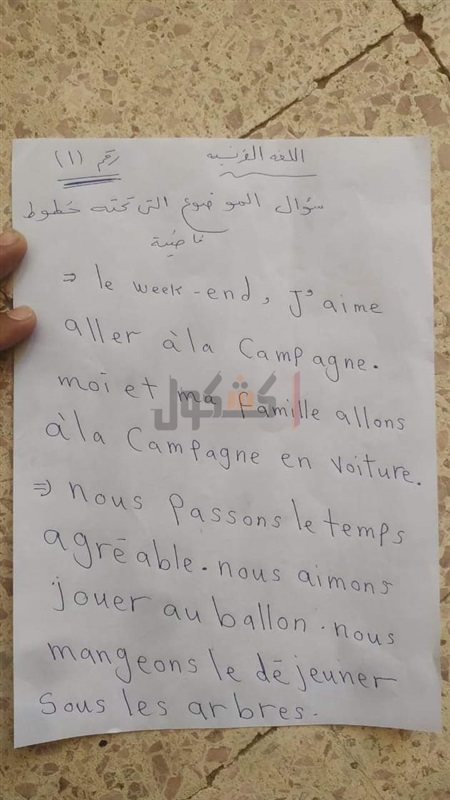 اللغة الفرنسية رقم (١)
سؤال الموضوع التى تحته خطوط
⇒ le week-end, J'aime
aller àla Campagne.
moi et ma famille allons
àla Campagne en voiture.
⇒ nous passons le temps
agréable. nous aimons
jouer au ballon. nous
mangeons le déjeuner
Sous les arbres.
كشكول